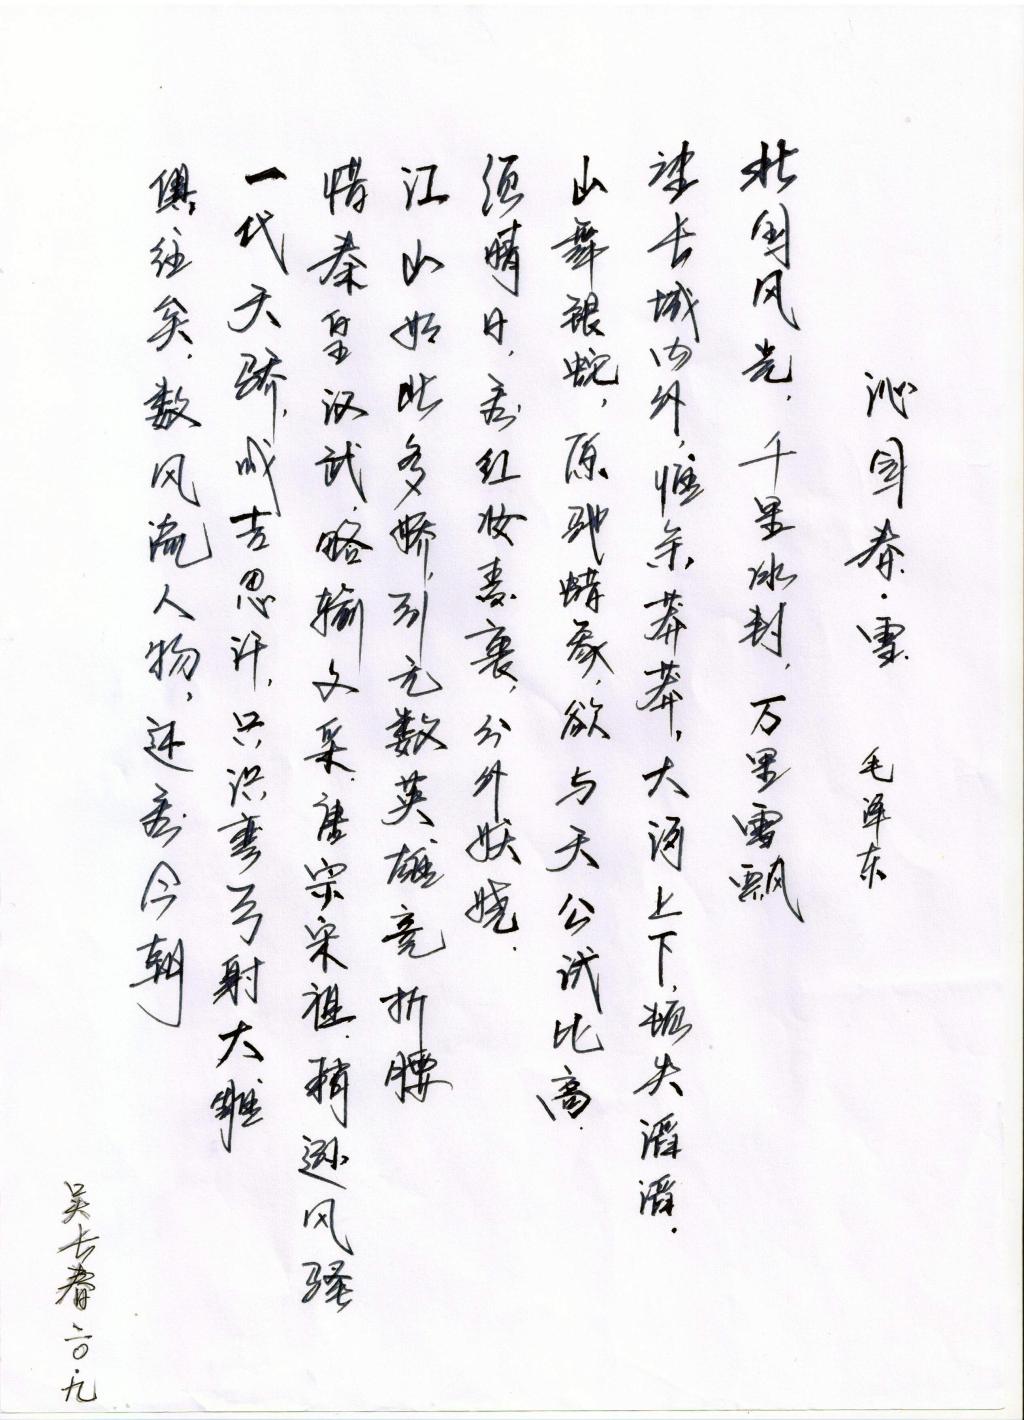 沁园春·雪 毛泽东
北国风光，千里冰封，万里雪飘
望长城内外，惟余莽莽，大河上下，顿失滔滔.
山舞银蛇，原驰蜡象，欲与天公试比高.
须晴日，看红妆素裹，分外妖娆.
江山如此多娇，引无数英雄竞折腰
惜秦皇汉武，略输文采，唐宗宋祖，稍逊风骚
一代天骄，成吉思汗，只识弯弓射大雕
俱往矣，数风流人物，还看今朝
吴长春 二〇·九